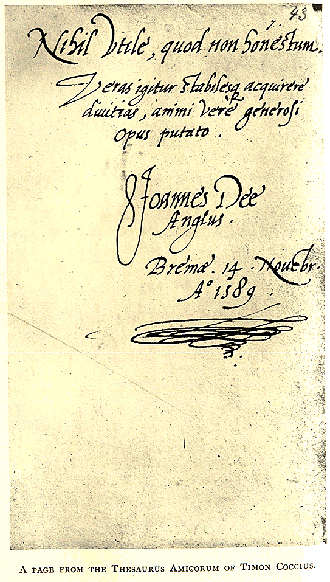 43
Nihil Vtile, quod non honestum.
Veras igitur stabilesq acquirere
divitias, animi verè generosi
opus putato.
Joannes Dee
Anglus.
Bremæ. 14. Novebr.
A° 1589.
A PAGE FROM THE THESAURUS AMICORUM OF TIMON COCCIUS.